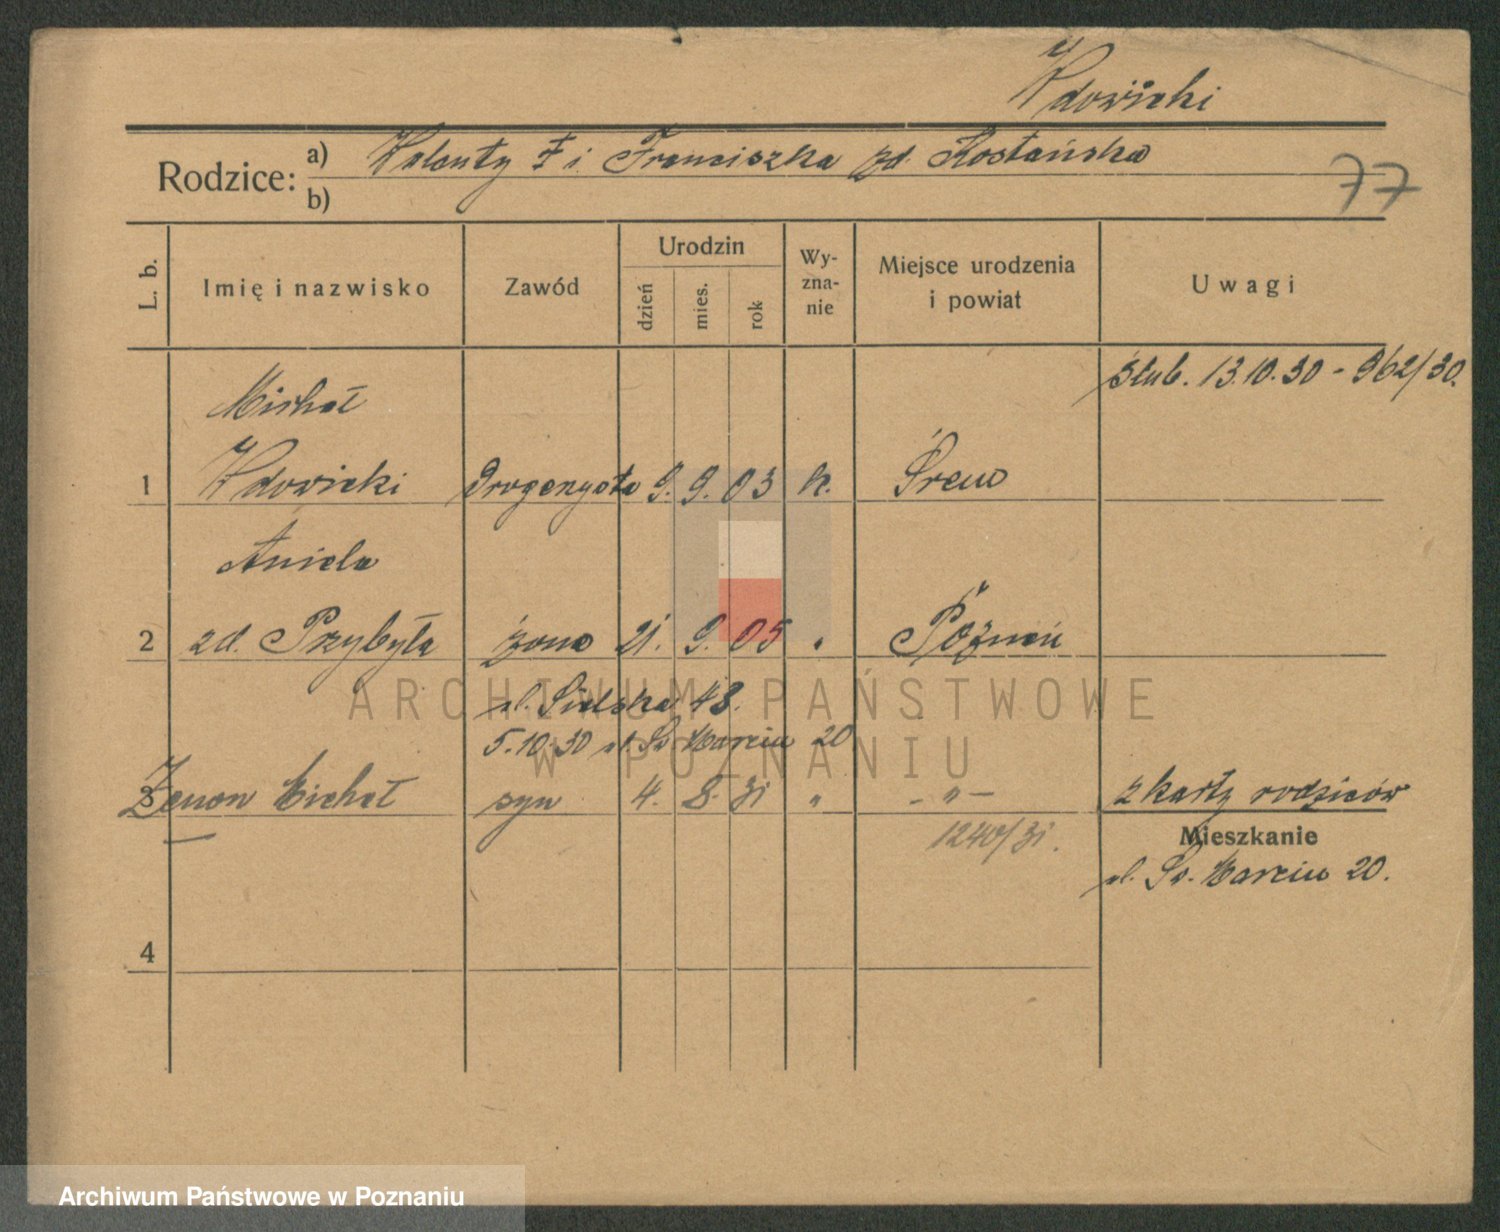 Wdowicki
Rodzice: a) Walenty † i Franciszka zd. Kostańska
b)
77
L. b. Imię i nazwisko Zawód Urodzin dzień mies. rok Wyznanie Miejsce urodzenia i powiat Uwagi
Ślub. 13.10.30 - 962/30.
Michał
1 Wdowicki Drogerzysta 9. 9. 03 k. Śrem
Aniela
2 zd. Przybyła żona 21. 9. 05 " Poznań
ul. Sielska 43.
5.10.30 ul. Św. Marcin 20
3 Zenon Michał syn 4. 8. 31 " - " - z karty rodziców
1240/31.
Mieszkanie
ul. Św. Marcin 20.
4
ARCHIWUM PAŃSTWOWE
W POZNANIU
Archiwum Państwowe w Poznaniu